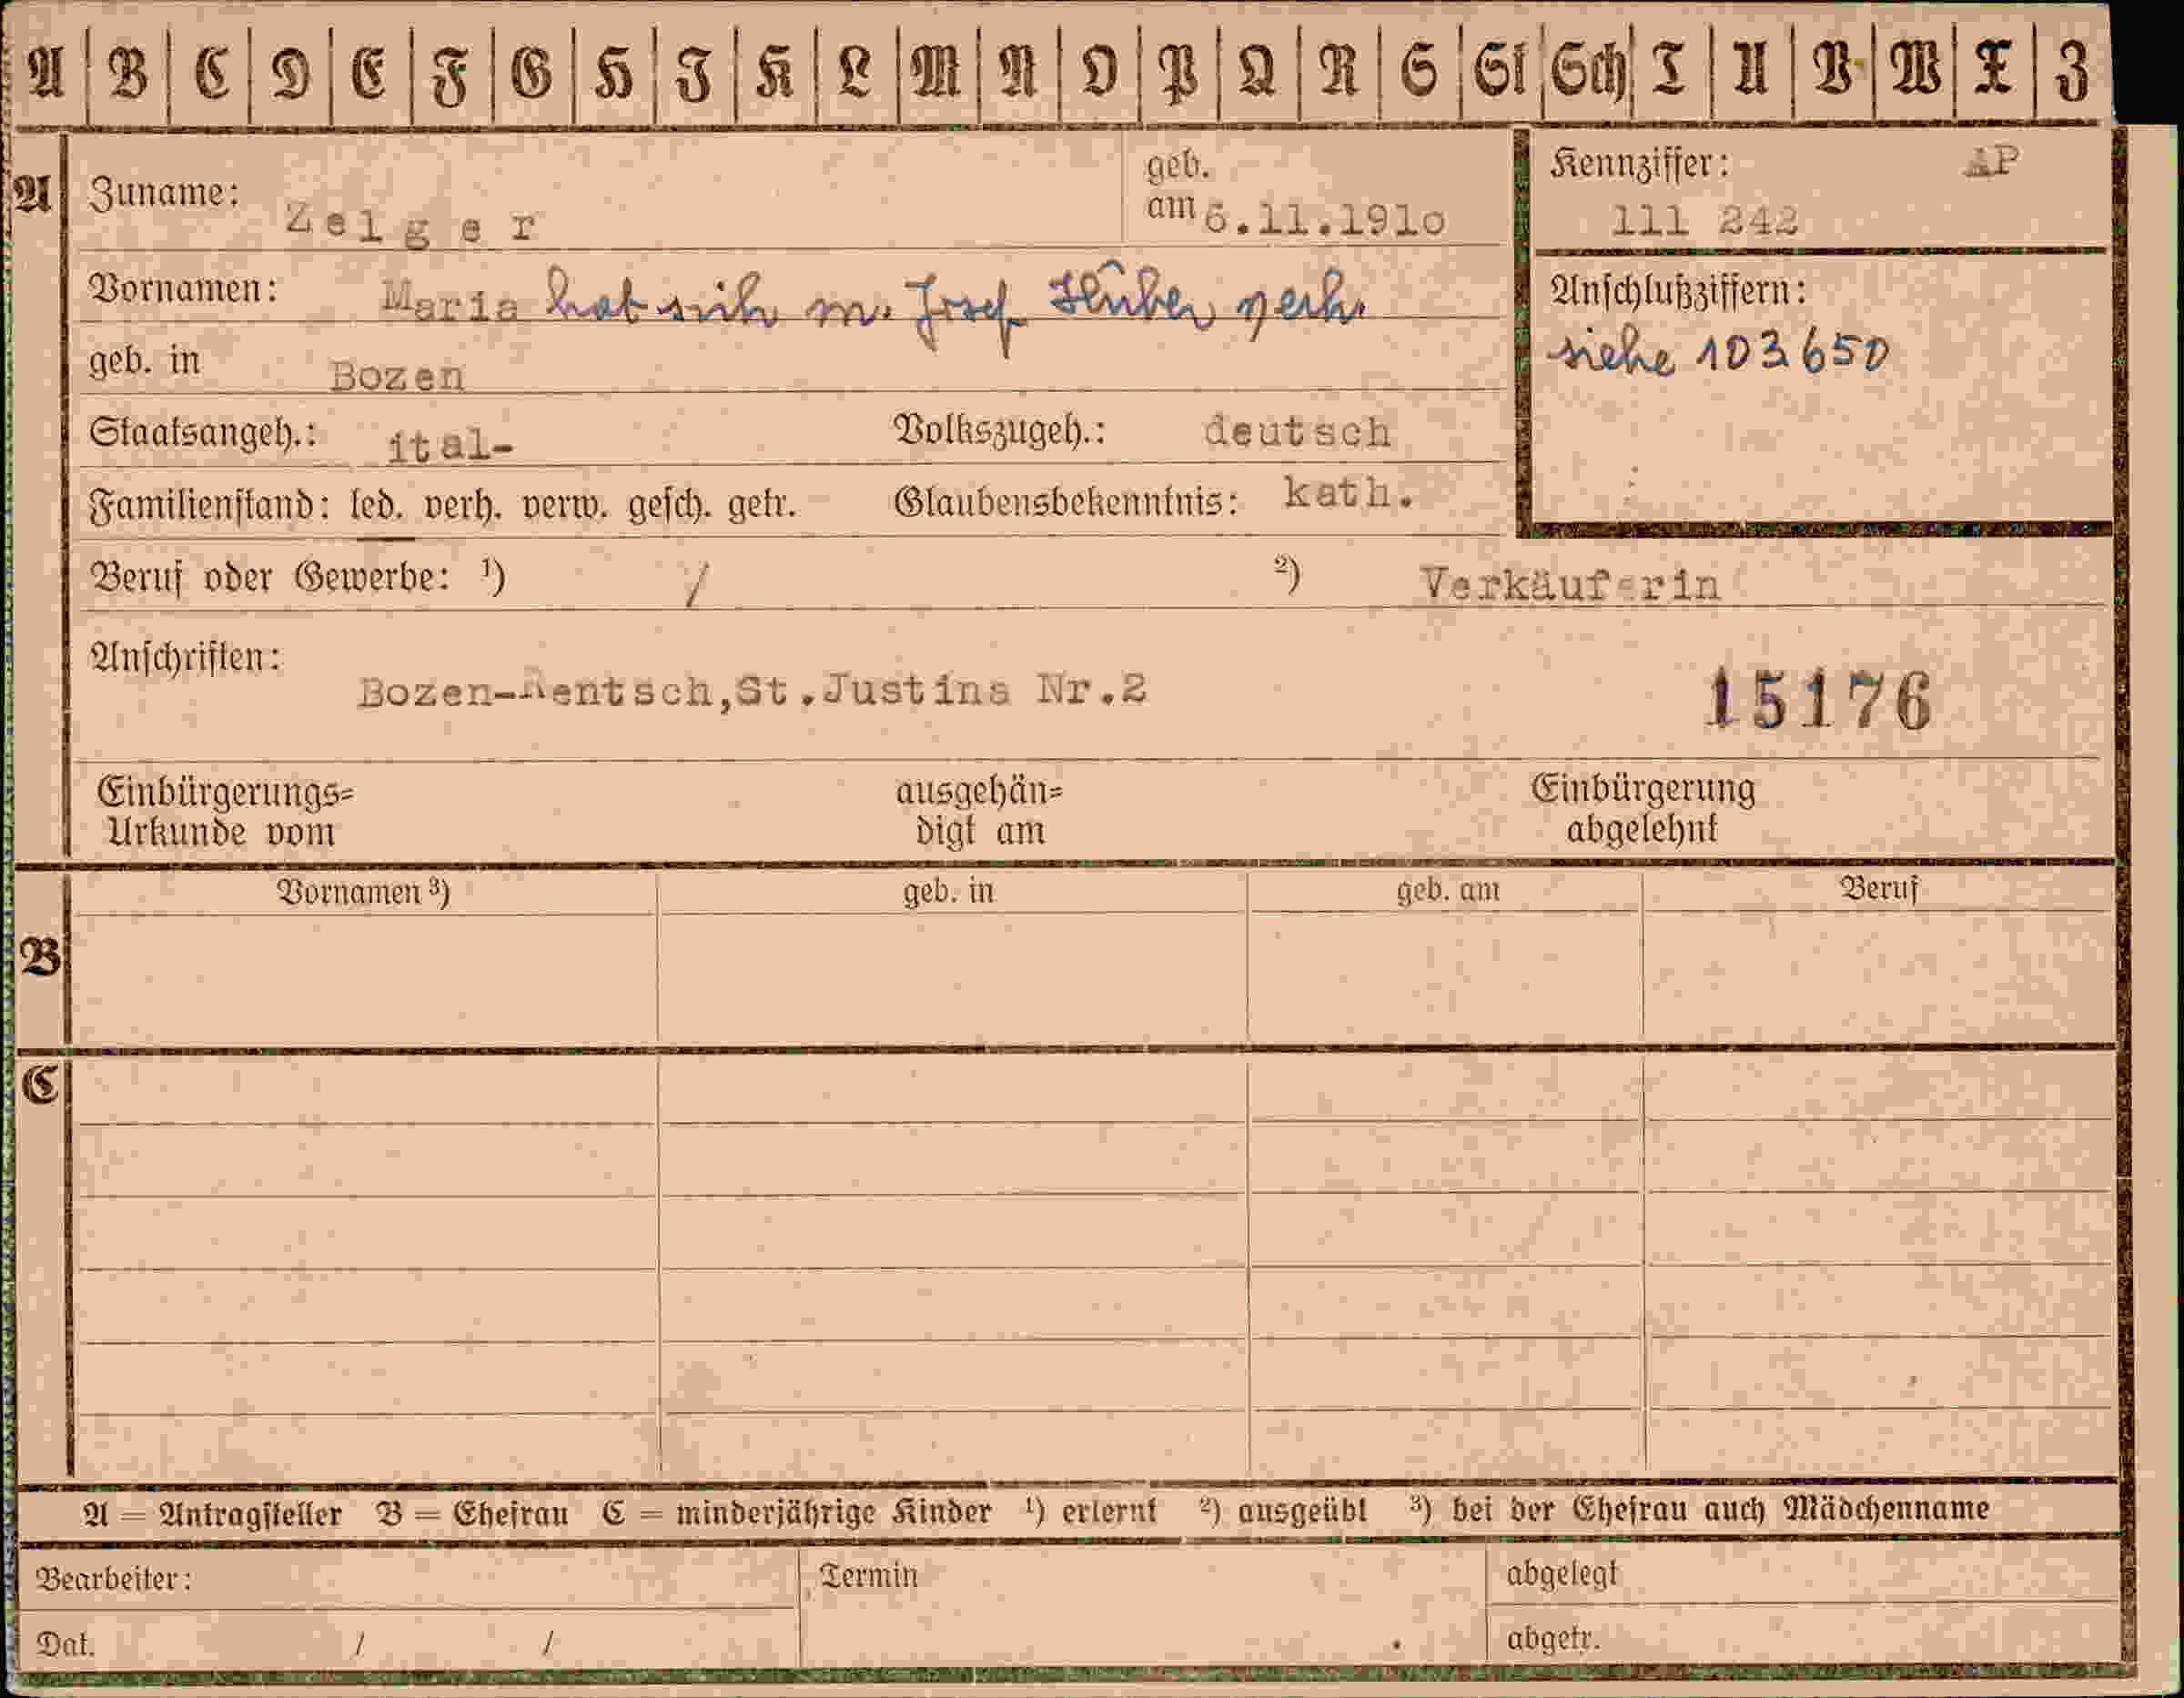 A B C D E F G H J K L M N O P Q R S St Sch T U V W X Z
A
Zuname: Zelger geb. am 6.11.1910
Kennziffer: AP
111 242
Vornamen: Maria hat sich m. Josef Hūber verh.
Anschlußziffern:
siehe 103650
geb. in Bozen
Staatsangeh.: ital- Volkszugeh.: deutsch
Familienstand: led. verh. verw. gesch. getr. Glaubensbekenntnis: kath.
Beruf oder Gewerbe: ¹) / ²) Verkäuferin
Anschriften:
Bozen-Rentsch,St.Justina Nr.2
15176
Einbürgerungs=
Urkunde vom
ausgehän=
digt am
Einbürgerung
abgelehnt
B
Vornamen ³) geb. in geb. am Beruf
C
A = Antragsteller B = Ehefrau C = minderjährige Kinder ¹) erlernt ²) ausgeübt ³) bei der Ehefrau auch Mädchenname
Bearbeiter: Termin abgelegt
Dat. / / abgetr.